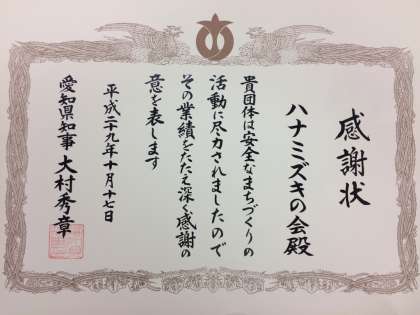 感謝状
ハナミズキの会殿
貴団体は安全なまちづくりの
活動に尽力されましたので
その業績をたたえ深く感謝の
意を表します
平成二十九年十月十七日
愛知県知事 大村秀章